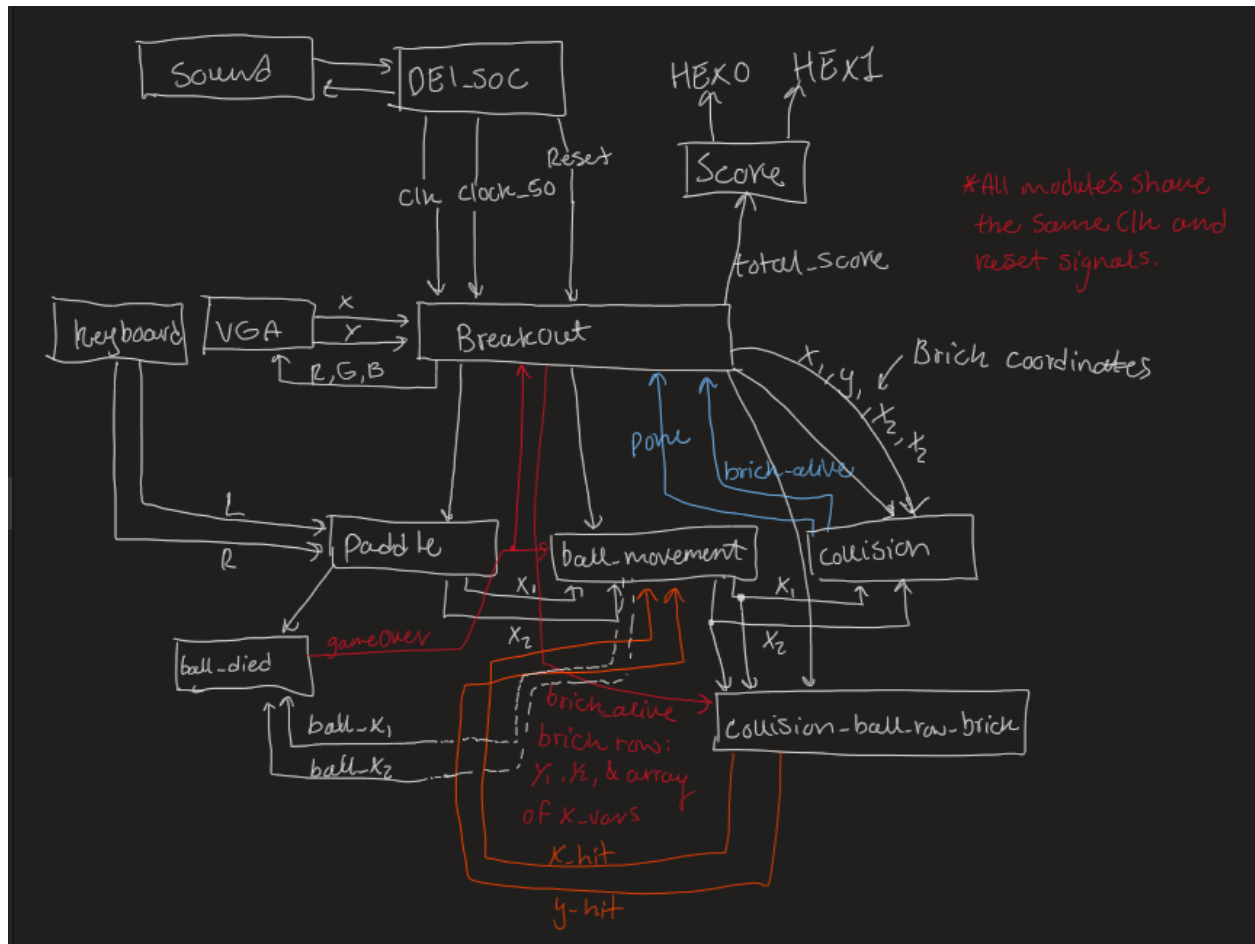 Sound
DE1_SOC
HEX0
HEX1
Score
Reset
Clk
Clock_50
*All modules share
the same Clk and
reset signals.
total_score
keyboard
VGA
X
Y
R,G,B
Breakout
X1, Y1, X2, X2
Brick coordinates
brick_alive
L
R
Paddle
ball_movement
Collision
X1
X2
X1
X2
gameOver
ball_died
ball_X1
ball_X2
brick_alive
brick row:
Y1, Y2, & array
of X_vars
Collision_ball_row_brick
X_hit
y_hit